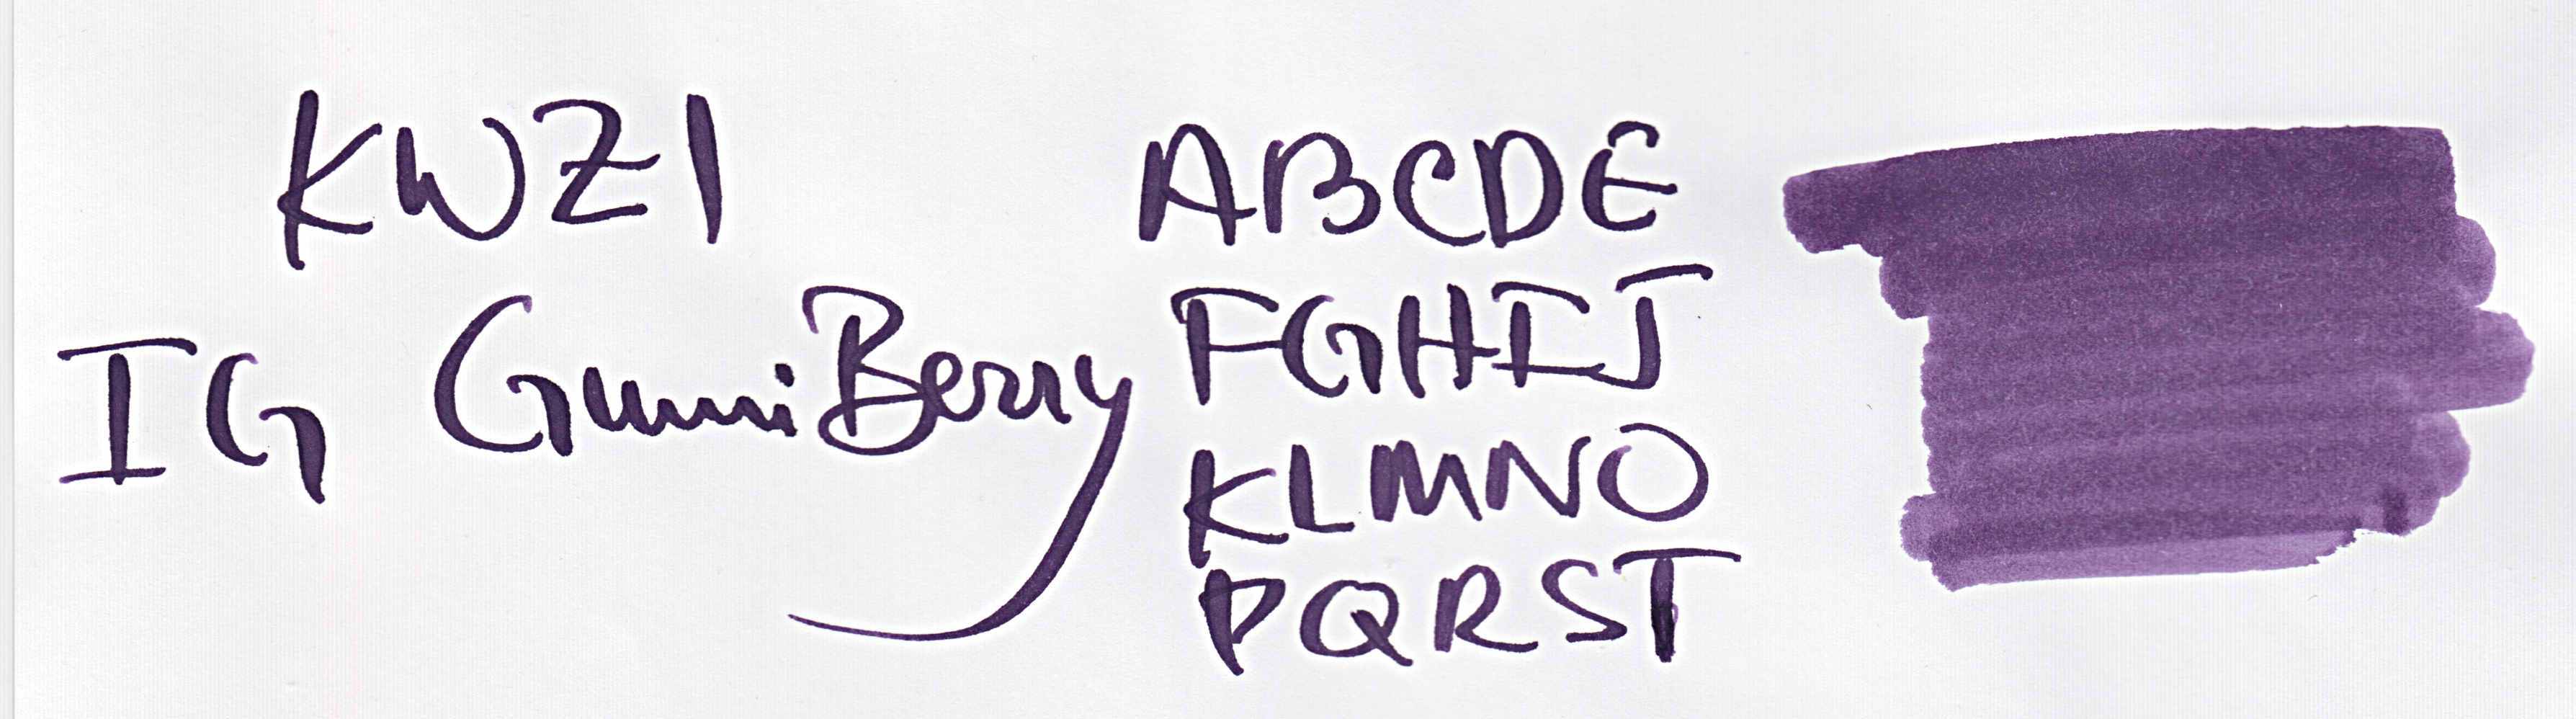 KWZI
IG GumiBerry
ABCDE
FGHIJ
KLMNO
PQRST